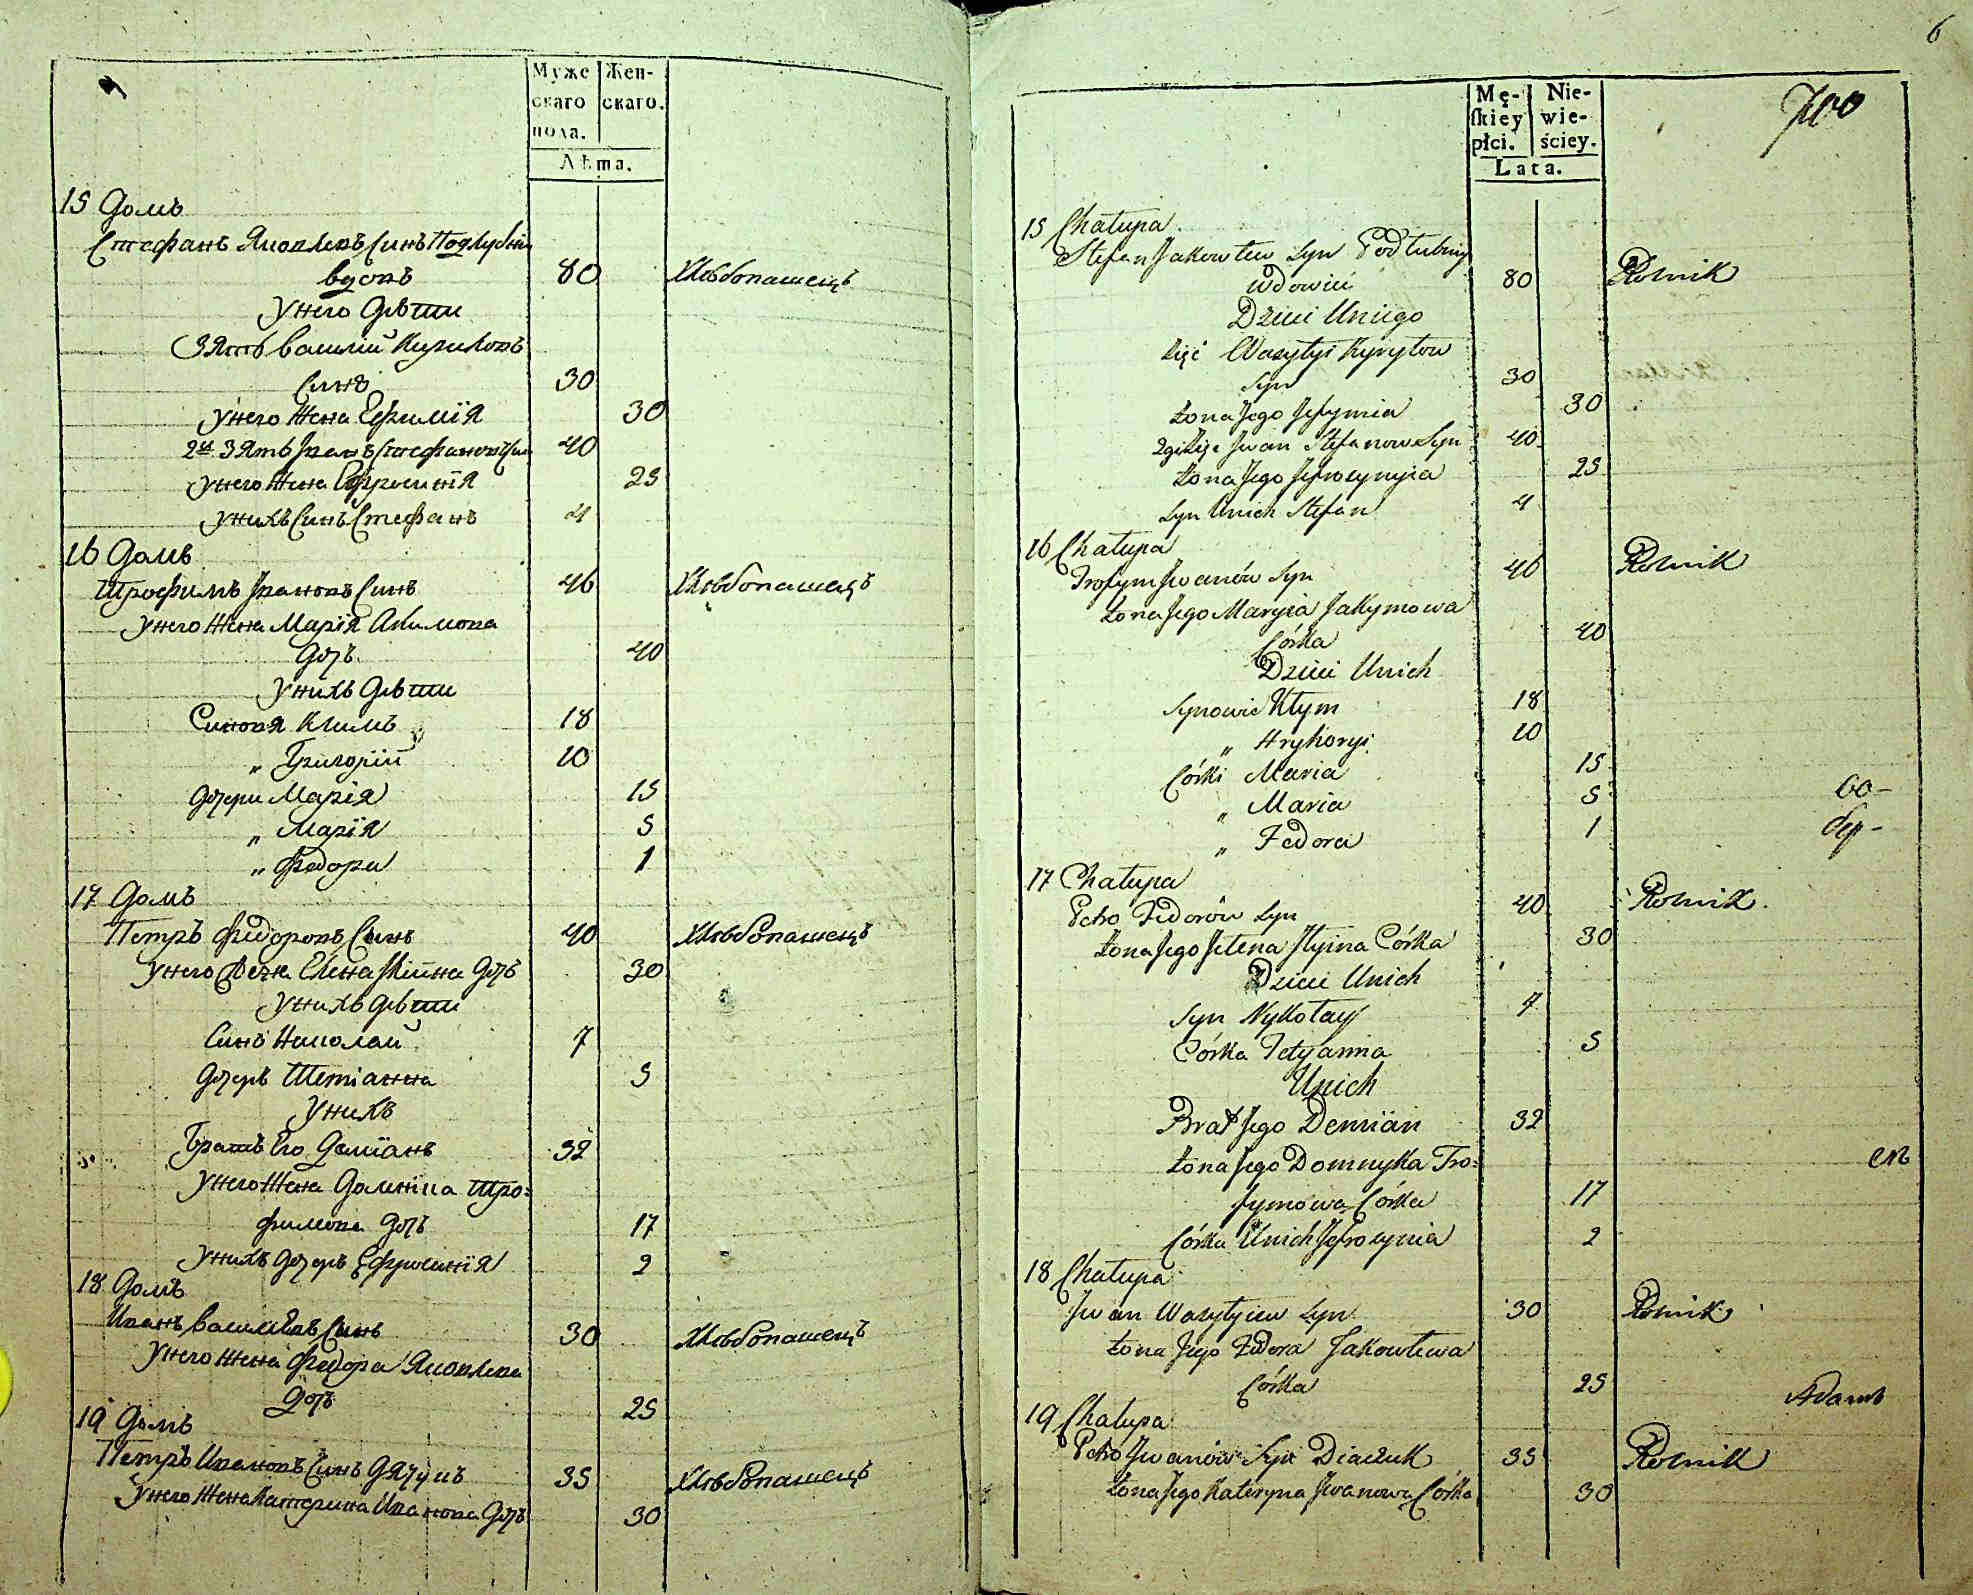 Муже Жен-
скаго скаго.
пола.
Лѣта.
15 Домъ
Стефанъ Яковлевъ Синъ Подлубний
вдовъ 80 Хлѣбопашецъ
У него Дѣти
Зять Василий Кириловъ
Синъ 30
У него Жена Ефимия 30
2й Зять Іванъ Стефановъ Син 40
У него Жена Ефросинія 25
У нихъ Синъ Стефанъ 4
16 Домъ
Трофимъ Івановъ Синъ 46 Хлѣбопашецъ
У него Жена Марія Акимова
Дочъ 40
У нихъ Дѣти
Синовя Климъ 18
„ Григорий 10
Дочери Марія 15
„ Марія 5
„ Федора 1
17 Домъ
Петръ Федоровъ Синъ 40 Хлѣбопашецъ
У него Жена Елена Ілійна Дочъ 30
У нихъ Дѣти
Синъ Николай 7
Дочеръ Тетіанна 5
У нихъ
Братъ Его Деміанъ 32
У него Жена Домникиа Тро=
фимова Дочъ 17
У нихъ дочеръ Ефросинія 2
18 Домъ
Иванъ Василіевъ Синъ 30 Хлѣбопашецъ
У него Жена Федора Яковлева
Дочъ 25
19 Домъ
Петръ Ивановъ Синъ Дячукъ 35 Хлѣбопашецъ
У него Жена Катерина Иванова Дочъ 30
6
Mę- Nie-
ſkiey wie-
płci. ściey.
Lata.
15 Chałupa
Stefan Jakowlew Syn Podłubny
Wdowiec 80 Rolnik
Dzieci Uniego
Zięć Wasyłyi Kyryłow
Syn 30
Żona Jego Jefymia 30
2gi Zięć Jwan Stefanow Syn 40
Żona Jego Jefrosynyia 25
Syn Unich Stefan 4
16 Chałupa
Trofym Jwanów Syn 46 Rolnik
Żona Jego Maryia Jakymowa
Córka 40
Dzieci Unich
Synowie Kłym 18
„ Hryhoryi 10
Córki Maria 15
„ Maria 5
„ Fedora 1
17 Chałupa
Petro Fedorów Syn 40 Rolnik
Żona Jego Jełena Jłyina Córka 30
Dzieci Unich
Syn Nykołay 7
Córka Tetyanna 5
Unich
Brat Jego Demiian 32
Żona Jego Domnyka Tro=
fymowa Córka 17
Córka Unich Jefrosynia 2
18 Chałupa
Jwan Wasyłyiew Syn 30 Rolnik
Żona Jego Fedora Jakowlewa
Córka 25
19 Chałupa
Petro Jwanów Syn Diaczuk 35 Rolnik
Żona Jego Kateryna Jwanowa Córka 30